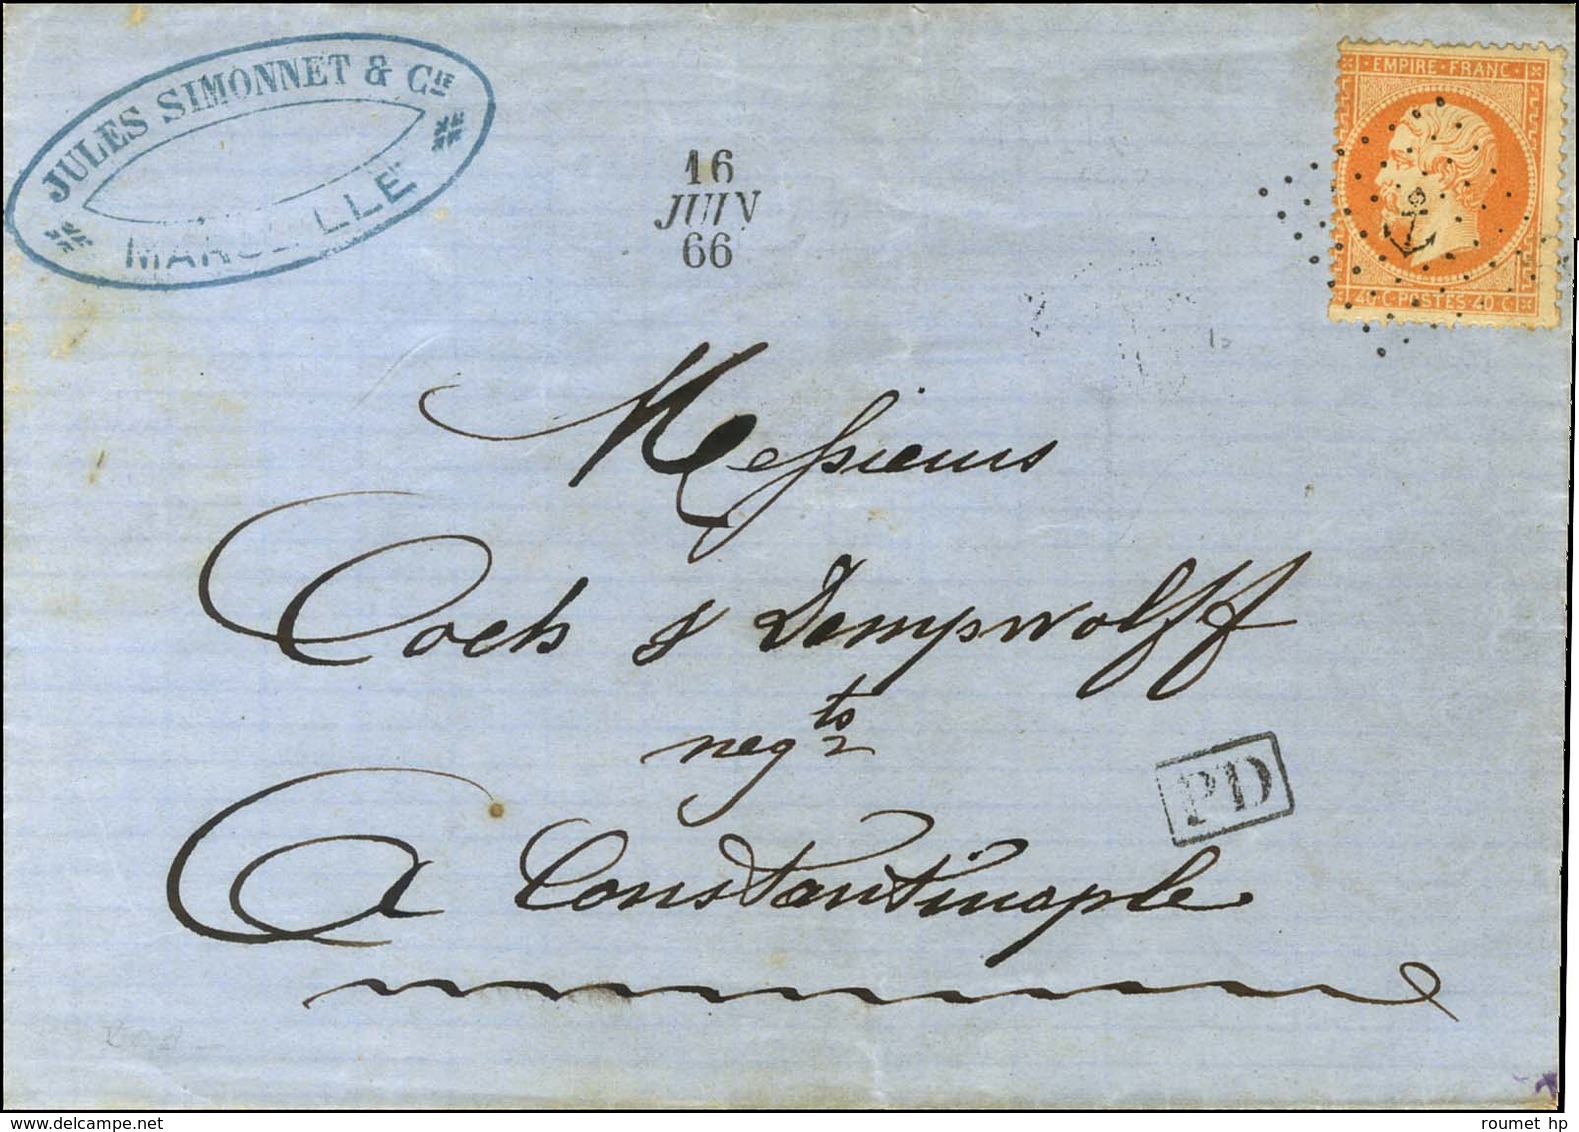 JULES SIMONNET & CIE
MARSEILLE
16
JUIN
66
EMPIRE FRANC
40 C POSTES 40 C
Messieurs
Coch & Dempwolff
negts
PD
A Constantinople
roumet hp